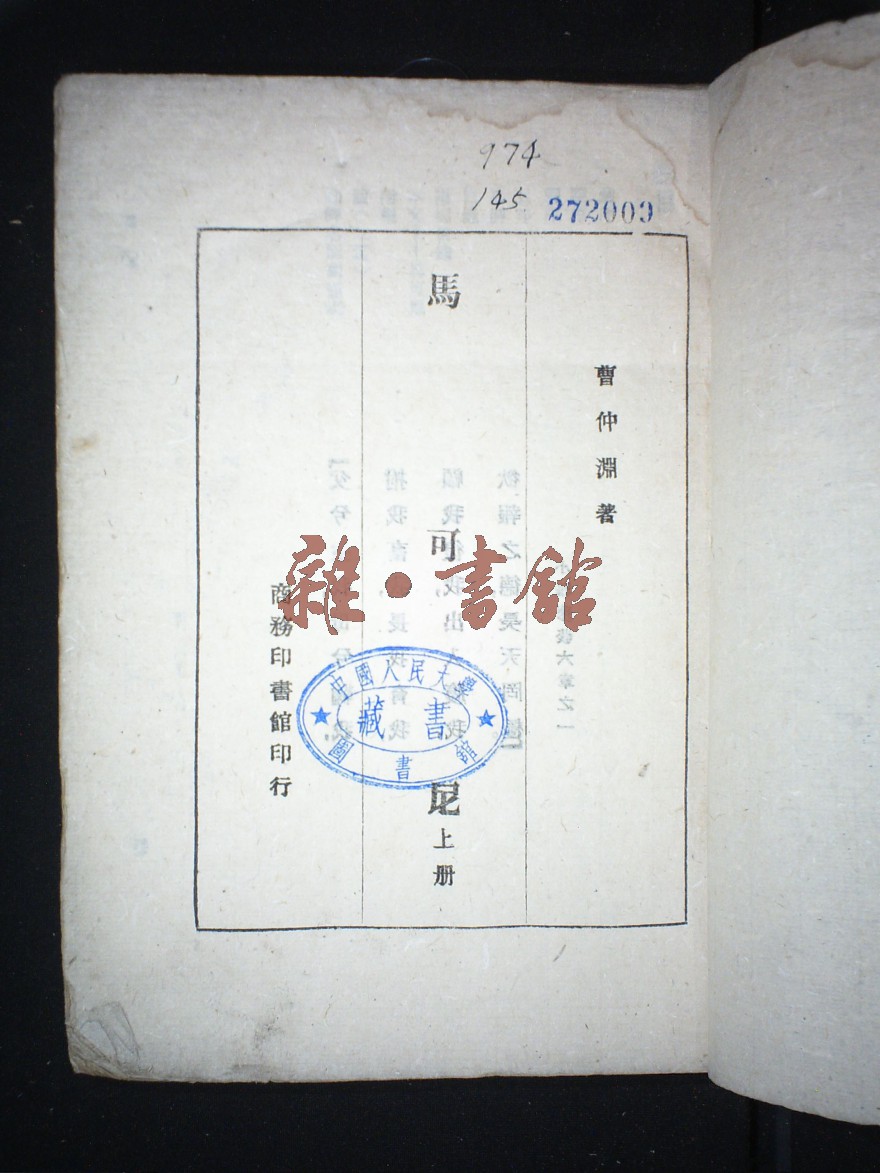 974
145
272009
曹仲淵著
馬可尼上册
商務印書館印行
雜·書館
中國人民大學
藏書
圖書館